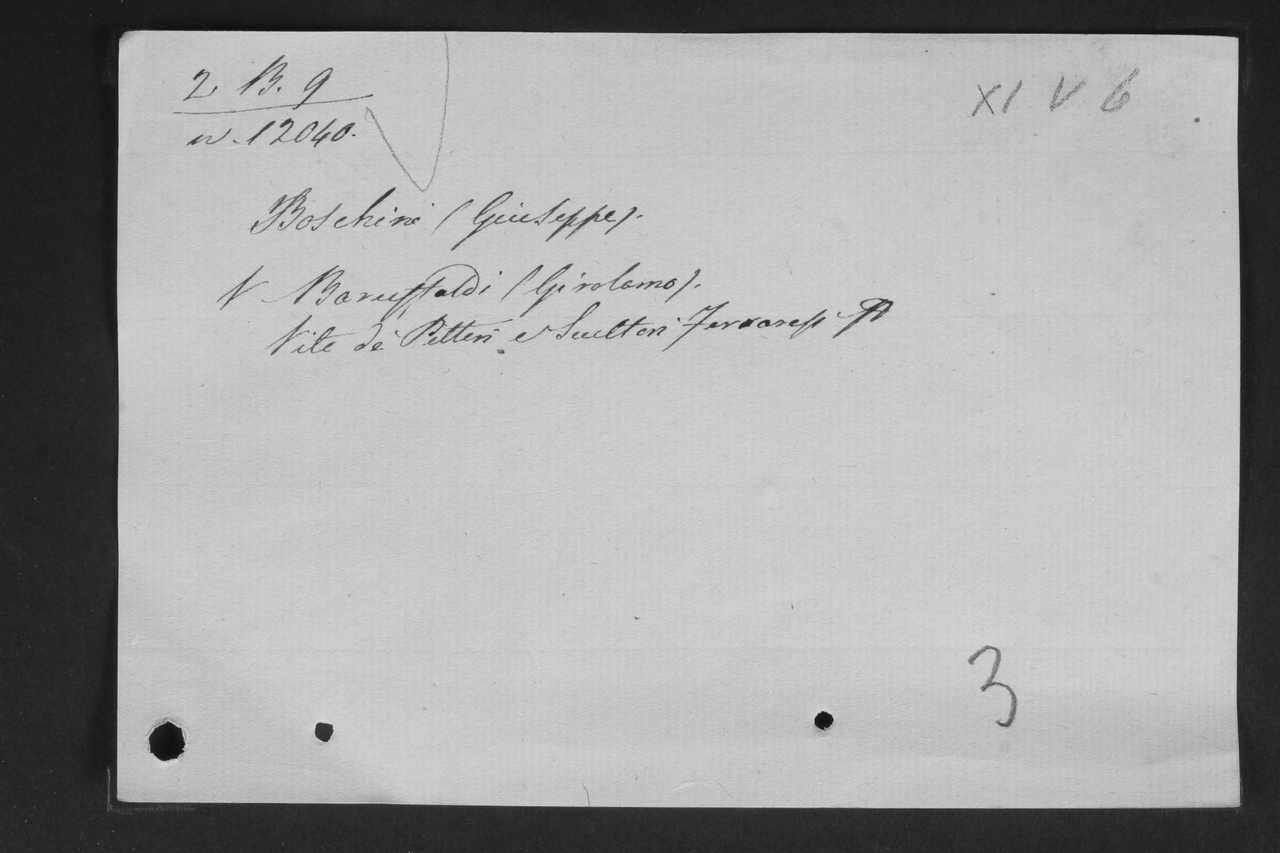 2. B. 9
XI V 6
n. 12040.
Boschini (Giuseppe).
V Baruffaldi (Girolamo).
Vite dè Pittori e Scultori Ferraresi
3